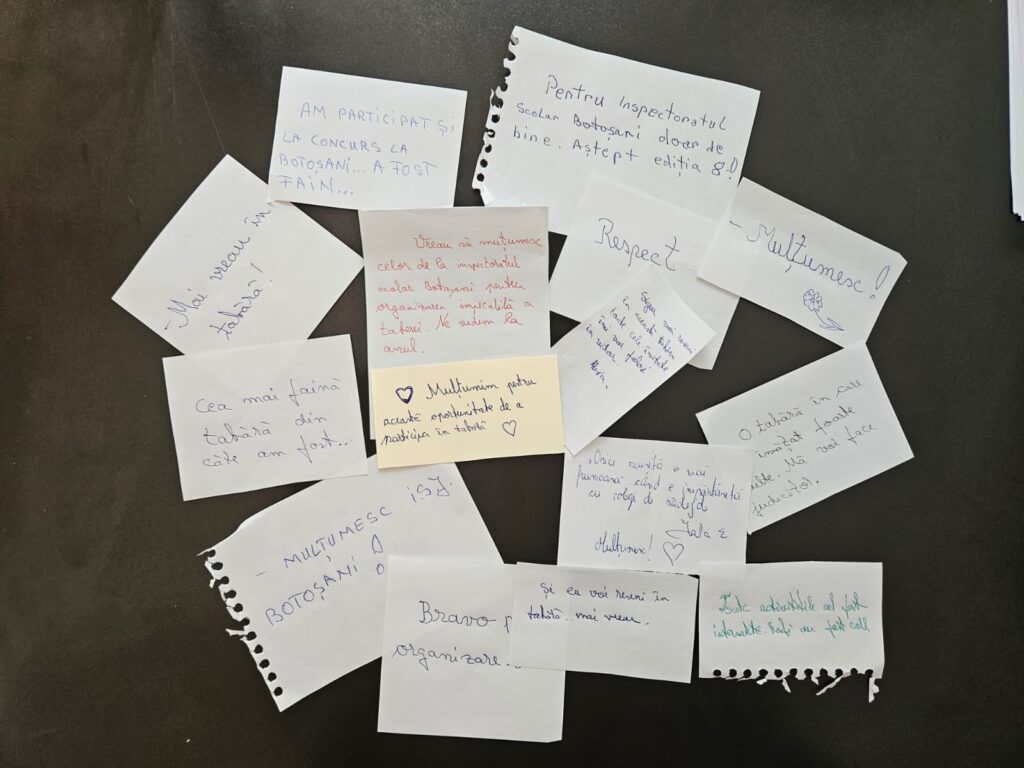 AM PARTICIPAT ȘI
LA CONCURS LA
BOTOȘANI... A FOST
FAIN...
Pentru Inspectoratul
Școlar Botoșani doar de
bine. Aștept ediția 8!
- Mai vreau în
tabără!
Vreau să mulțumesc
celor de la inspectoratul
școlar Botoșani pentru
organizarea impecabilă a
taberei. Ne vedem la
anul.
Respect
- Mulțumesc!
Sigur voi reveni
în această tabără
toate cele învățate
îmi vor folosi
în viitor.
Cea mai faină
tabără din
câte am fost...
Mulțumim pentru
această oportunitate de a
participa în tabără
O tabără în care
învățat foarte
multe. Mă voi face
judecător.
Orice reușită e mai
frumoasă când e împărtășită
cu colegi de nădejde
Mulțumesc!
- MULȚUMESC ISJ
BOTOȘANI
Bravo p
organizare
Și eu voi reveni în
tabără.. mai vreau.
Toate activitățile au fost
interesante. Profii au fost cool